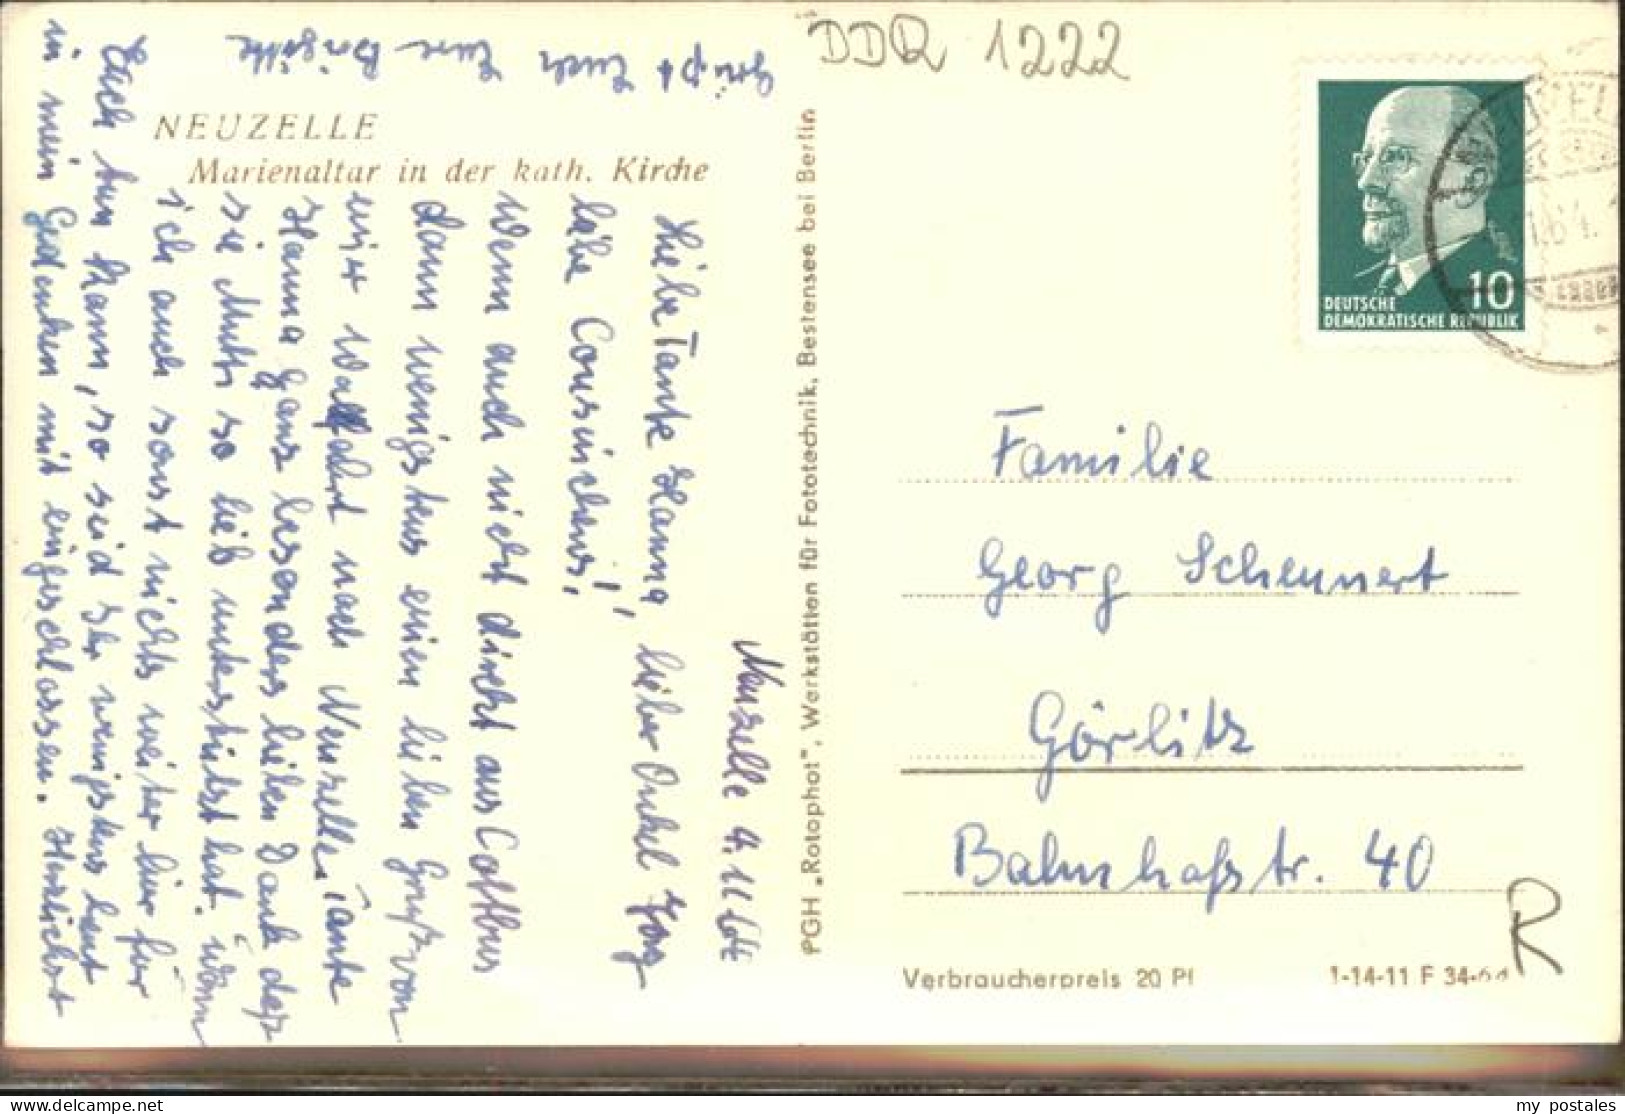 DDR 1222
NEUZELLE
Marienaltar in der kath. Kirche
Neuzelle 4.11.64
Liebe Tante Hanna, lieber Onkel
liebe Cousinchens!
Wenn auch nicht direkt aus Cottbus
dann wenigstens einen lieben Gruß von
einer Wallfahrt nach Neuzelle. Tante
Hanna ganz besonders lieben Dank daß
sie Mutti so lieb unterstützt hat. Wenn
ich auch sonst nichts weiter hier für
Euch tun kann, so seid Ihr wenigstens heut
in mein Gedenken mit eingeschlossen. Herzlichst
Grüßt Euch Eure Brigitte
PGH „Rotophot", Werkstätten für Fototechnik, Bestensee bei Berlin
DEUTSCHE
DEMOKRATISCHE REPUBLIK
10
Familie
Georg Scheunert
Görlitz
Bahnhofstr. 40
Verbraucherpreis 20 Pf
1-14-11 F 34-64
R
my postales